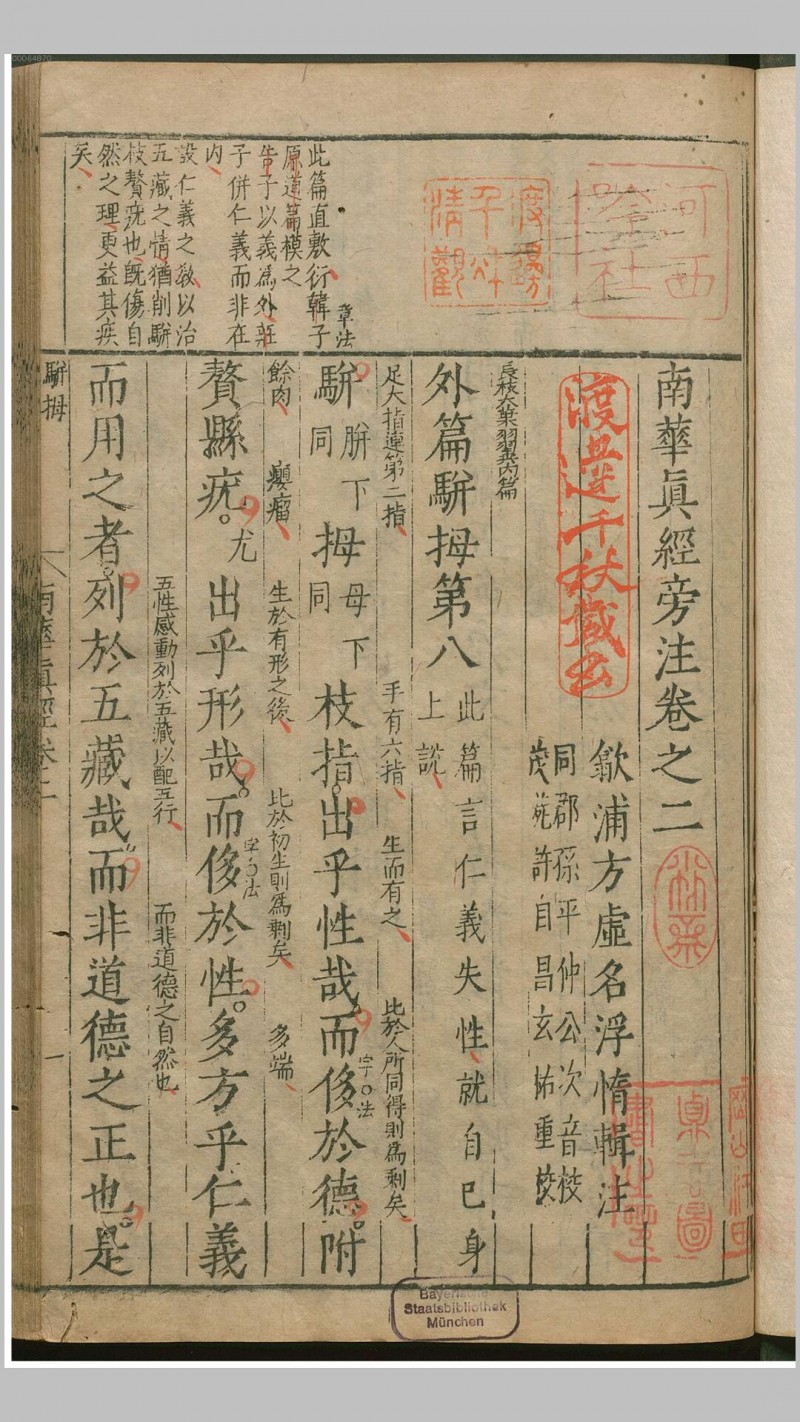 00064870
南華眞經旁注卷之二
歙浦方虛名浮惰輯注
同郡孫平仲公次音校
茂苑許自昌玄祐重校
長枝大葉羽翼內篇
外篇駢拇第八
此篇言仁義失性就自己身
上說
足大指連第二指
手有六指
生而有之
比於人所同得則爲剩矣
駢胼下同拇母下同枝指出乎性哉而侈於德附
字法
餘肉
癭瘤
生於有形之後
比於初生則爲剩矣
多端
贅縣疣尤出乎形哉而侈於性多方乎仁義
字法
五性感動列於五藏以配五行
而非道德之自然也
而用之者列於五藏哉而非道德之正也是
章法
此篇直敷衍韓子
原道篇模之
告子以義爲外莊
子併仁義而非在
内
設仁義之敎以治
五藏之情猶削駢
枝贅疣也旣傷自
然之理更益其疾
矣
駢拇
南華眞經卷二
一
Bayerische
Staatsbibliothek
München